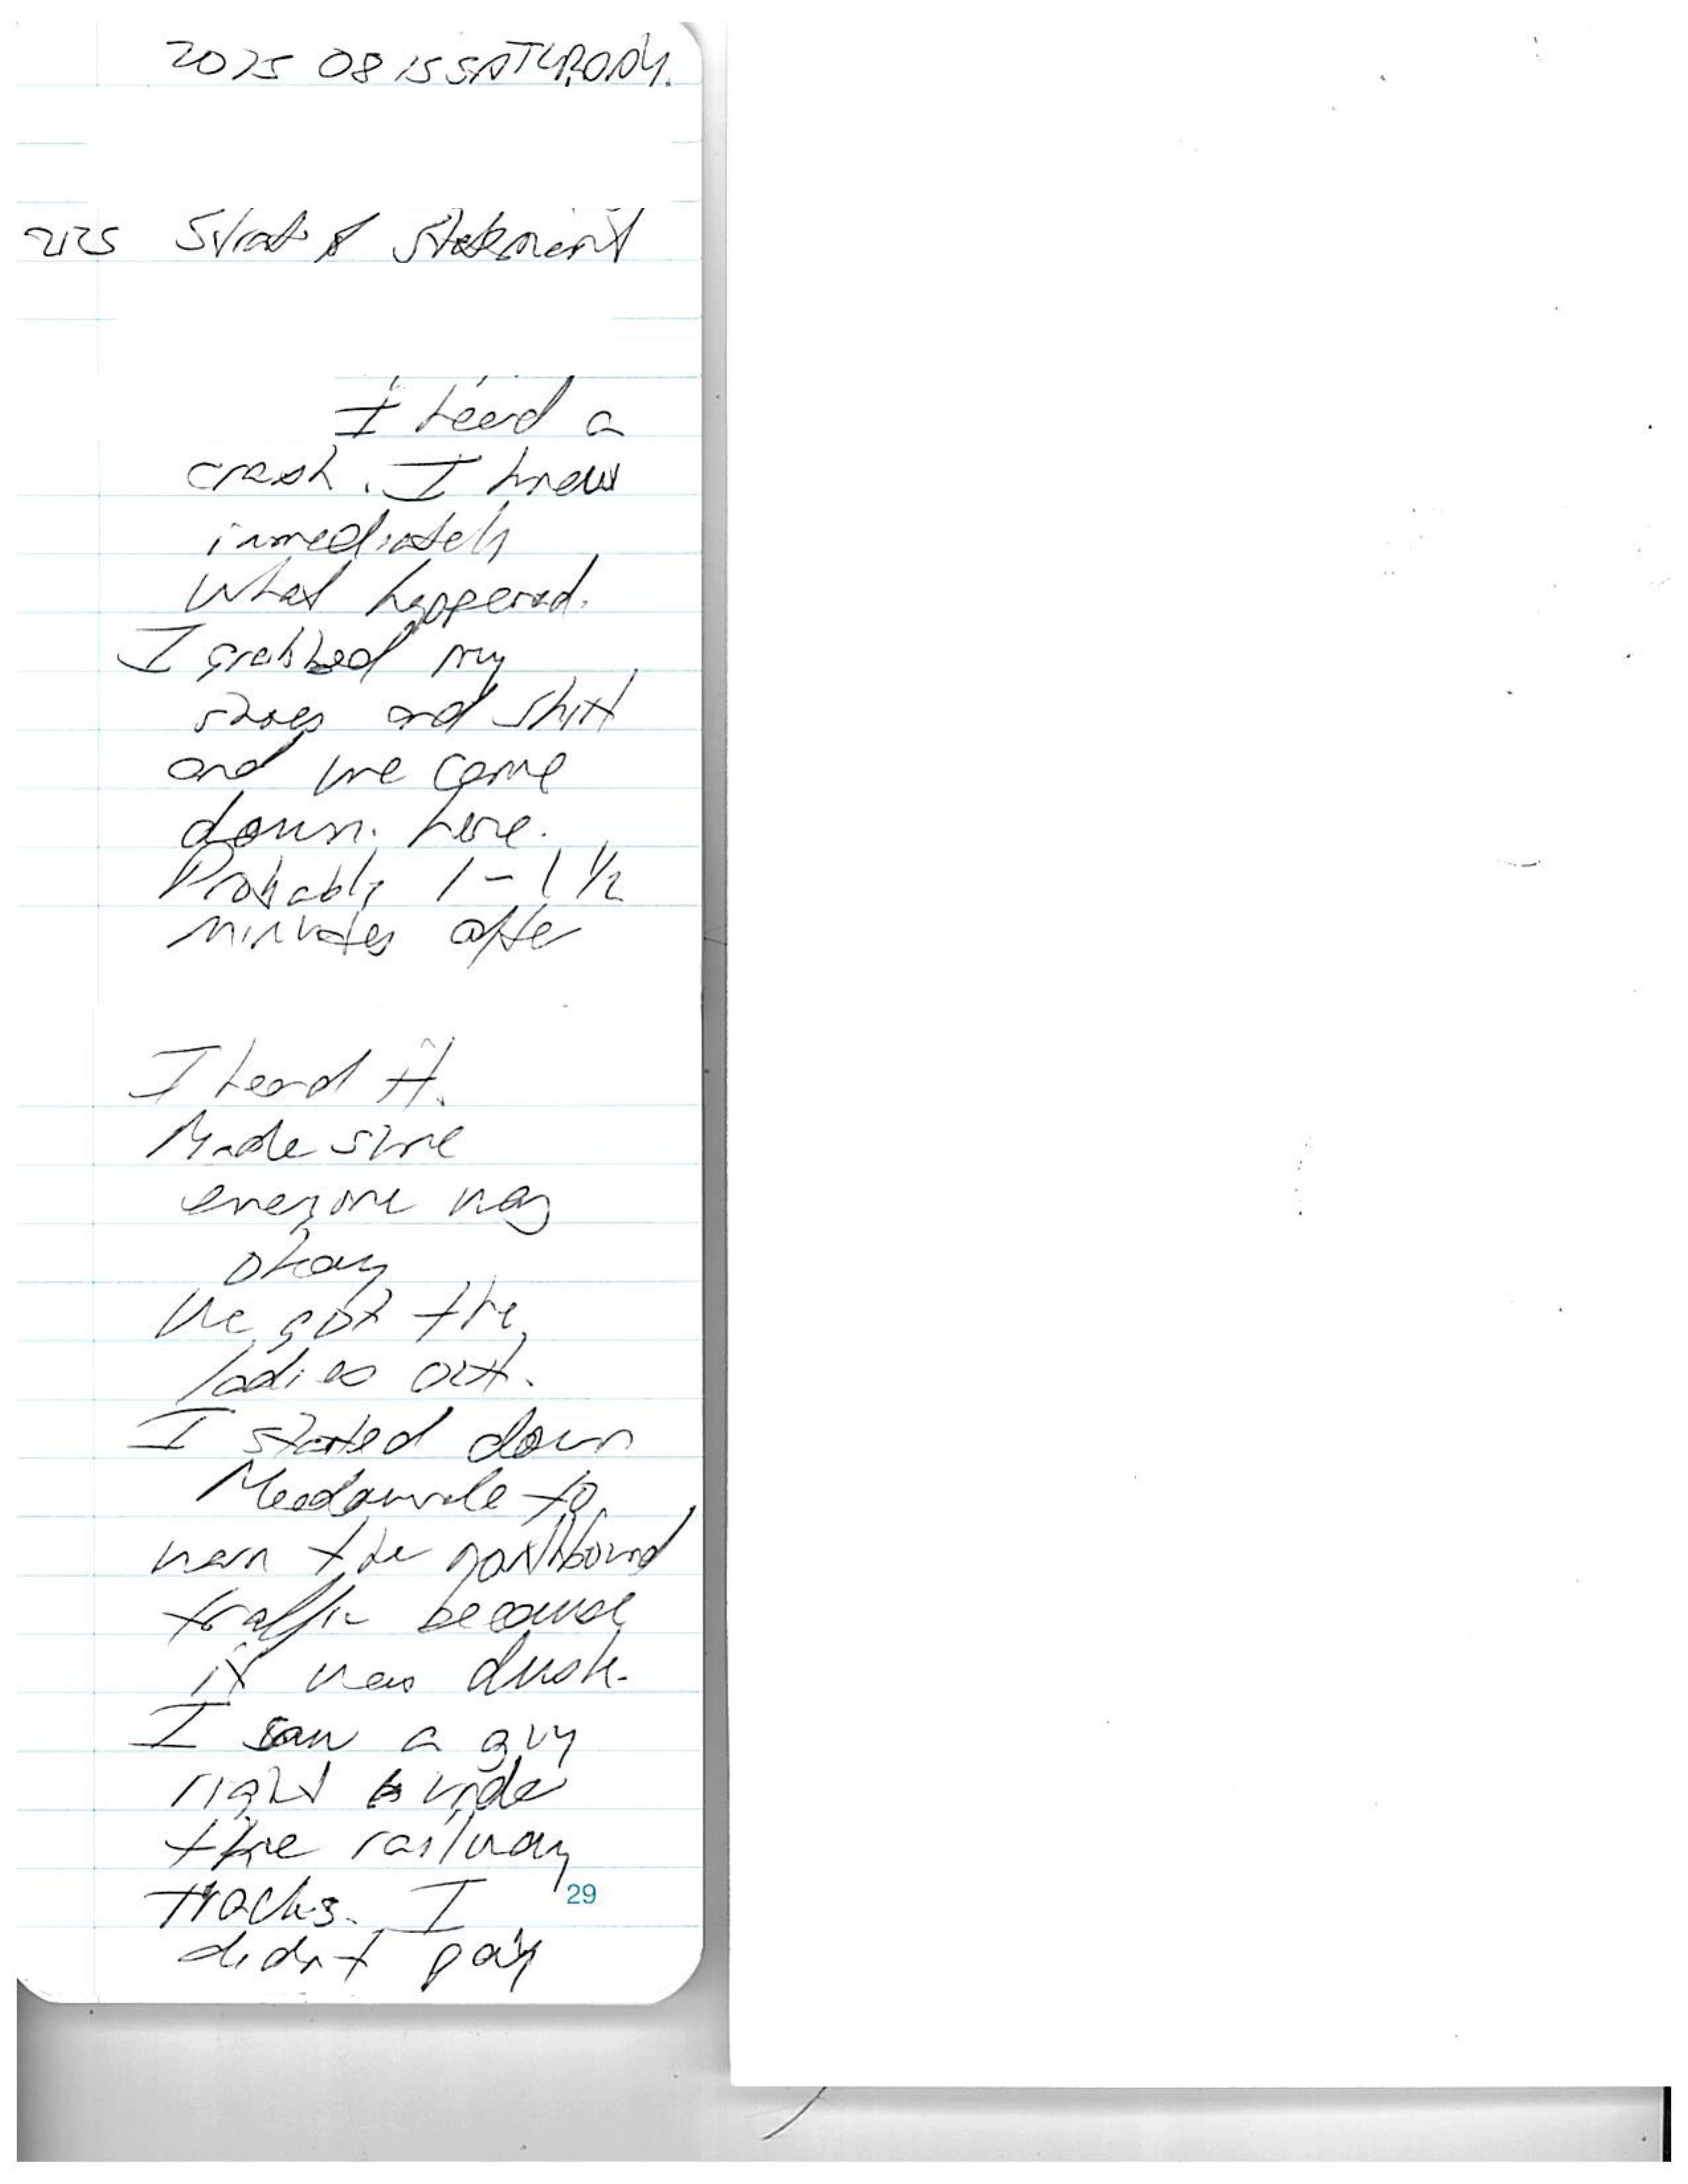 2015 08 15 SATURDAY.
2125 Start of Statement
I heard a
crash. I knew
immediately
what happened.
I grabbed my
shoes and shirt
and we came
down here.
Probably 1-1 1/2
minutes after
I heard it.
Made sure
everyone was
okay
We got the
ladies out.
I started down
Meadowvale to
warn the northbound
traffic because
it was dusk.
I saw a guy
right under
the railway
tracks. I
29
didn't pay